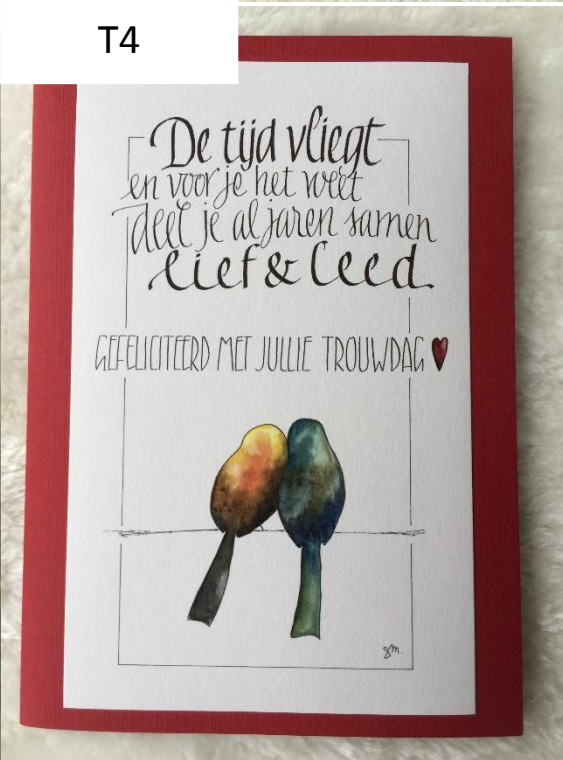 T4
De tijd vliegt
en voor je het weet
deel je al jaren samen
lief & leed.
GEFELICITEERD MET JULLIE TROUWDAG
gm.